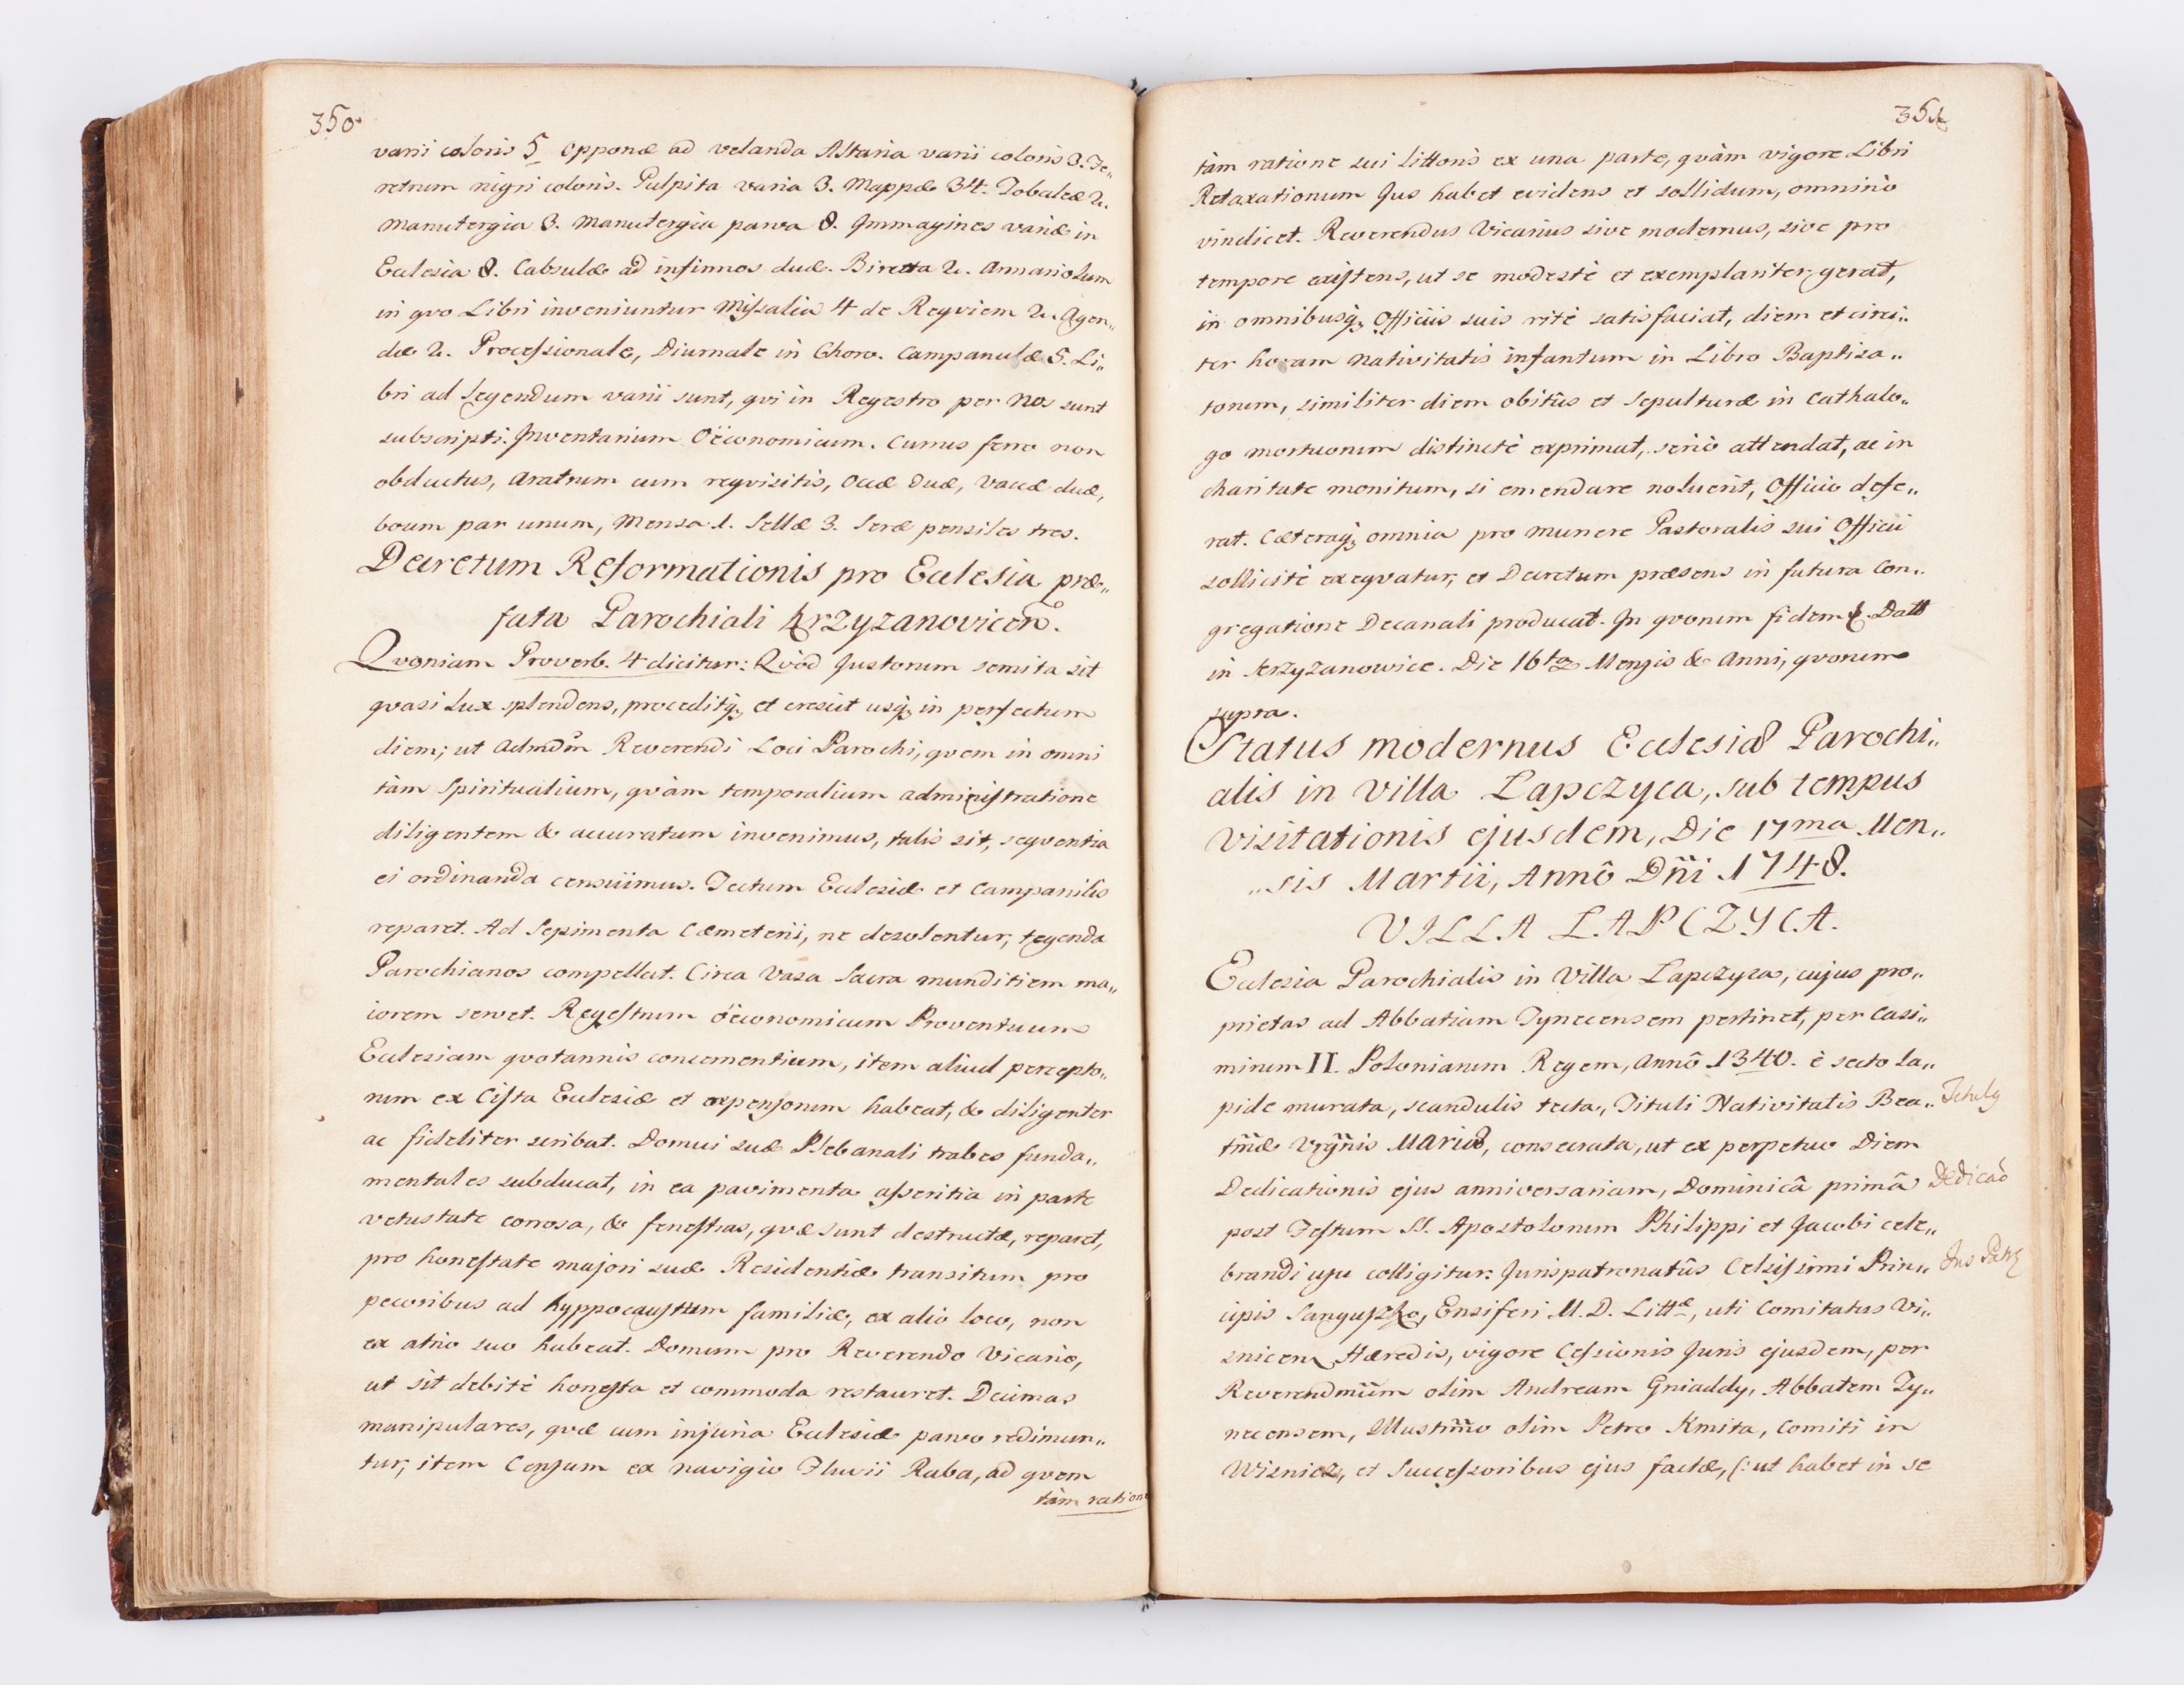 350.
varii coloris 5 Opponæ ad velanda Altaria varii coloris 3. Fe„
retrum nigri coloris. Pulpita varia 3. Mappæ 34. Tobaleæ 2.
Manutergia 3. Manutergia parva 8. Immagines variæ in
Ecclesia 8. Cabsulæ ad infirmos duæ. Biretta 2. Annariolum
in qvo Libri inveniuntur Missalia 4 de Reqviem 2. Agen„
dæ 2. Processionale, Diurnale in Choro. Campanulæ 5. Li„
bri ad legendum varii sunt, qvi in Regestro per Nos sunt
subscripti. Inventarium Oëconomicum. Currus ferro non
obductus, Aratrum cum reqvisitis, Occæ duæ, Vaccæ duæ,
boum par unum, Mensa 1. Sellæ 3. Seræ pensiles tres.
Decretum Reformationis pro Ecclesia præ„
fata Parochiali Krzyzanovicen.
Qvoniam Proverb. 4 dicitur: Qvòd Justorum semita sit
qvasi Lux splendens, proceditq; et crescit usq; in perfectum
diem; ut Admdm Reverendi Loci Parochi, qvem in omni
tàm Spiritualium, qvàm temporalium administratione
diligentem & accuratum invenimus, talis sit, seqventia
ei ordinanda censuimus. Tectum Ecclesiæ et Campanilis
reparet. Ad Sepimenta Cæmeterii, ne desolentur, tegenda
Parochianos compellat. Circa Vasa Sacra munditiem ma„
iorem servet. Regestrum öeconomicum Proventuum
Ecclesiam qvotannis concernentium, item aliud percepto„
rum ex Cista Ecclesiæ et expensorum habeat, & diligenter
ac fideliter scribat. Domui suæ Plebanali trabes funda„
mentales subducat, in ea pavimenta asseritia in parte
vetustate corrosa, & fenestras, qvæ sunt destructæ, reparet,
pro honestate majori suæ Residentiæ transitum pro
pecoribus ad hyppocaustum familiæ, ex alio loco, non
ex atrio suo habeat. Domum pro Reverendo Vicario,
ut sit debitè honesta et commoda restauret. Decimas
manipulares, qvæ cum injuria Ecclesiæ parvo redimun„
tur, item Censum ex navigio Fluvii Raba, ad qvem
tàm ratione
351
tàm ratione sui littoris ex una parte, qvàm vigore Libri
Retaxationum Jus habet evidens et sollidum, omninò
vindicet. Reverendus Vicarius sive modernus, sive pro
tempore existens, ut se modestè et exemplariter gerat,
in omnibusq; Officiis suis ritè satisfaciat, diem et circi„
ter horam Nativitatis infantum in Libro Baptisa„
torum, similiter diem obitûs et Sepulturæ in Cathalo„
go mortuorum distinctè exprimat, seriò attendat, ac in
charitate monitum, si emendare noluerit, Officio defe„
rat. Cæteraq; omnia pro munere Pastoralis sui Officii
sollicitè exeqvatur, et Decretum præsens in futura Con„
gregatione Decanali producat. In qvorum fidem &. Datt
in Krzyzanowice. Die 16ta Mensis & Anni, qvorum
supra.
Status modernus Ecclesiæ Parochi„
alis in Villa Lapczyca, sub tempus
Visitationis ejusdem, Die 17ma Men„
„sis Martii, Annô Dñi 1748.
VILLA LAPCZYCA.
Ecclesia Parochialis in Villa Lapczyca, cujus pro„
prietas ad Abbatiam Tynecensem pertinet, per Casi„
mirum II. Poloniarum Regem, Annô 1340. è secto la„
pide murata, scandulis tecta, Tituli Nativitatis Bea„
tm̃æ Virgñis MARIÆ, consecrata, ut ex perpetuo Diem
Dedicationis ejus anniversariam, Dominicâ primâ
Dedicaõ
post Festum SS. Apostolorum Philippi et Jacobi cele„
brandi usu colligitur. Jurispatronatûs Celsissimi Prin„
cipis Sanguszko, Ensiferi M. D. Littæ, uti Comitatus Vi„
snicen Hæredis, vigore Cessionis Juris ejusdem, per
Reverendmũm olim Andream Gniaddy, Abbatem Ty„
necensem, Illustrm̃o olim Petro Kmita, Comiti in
Wisnicz, et Successoribus ejus factæ, (: ut habet in se